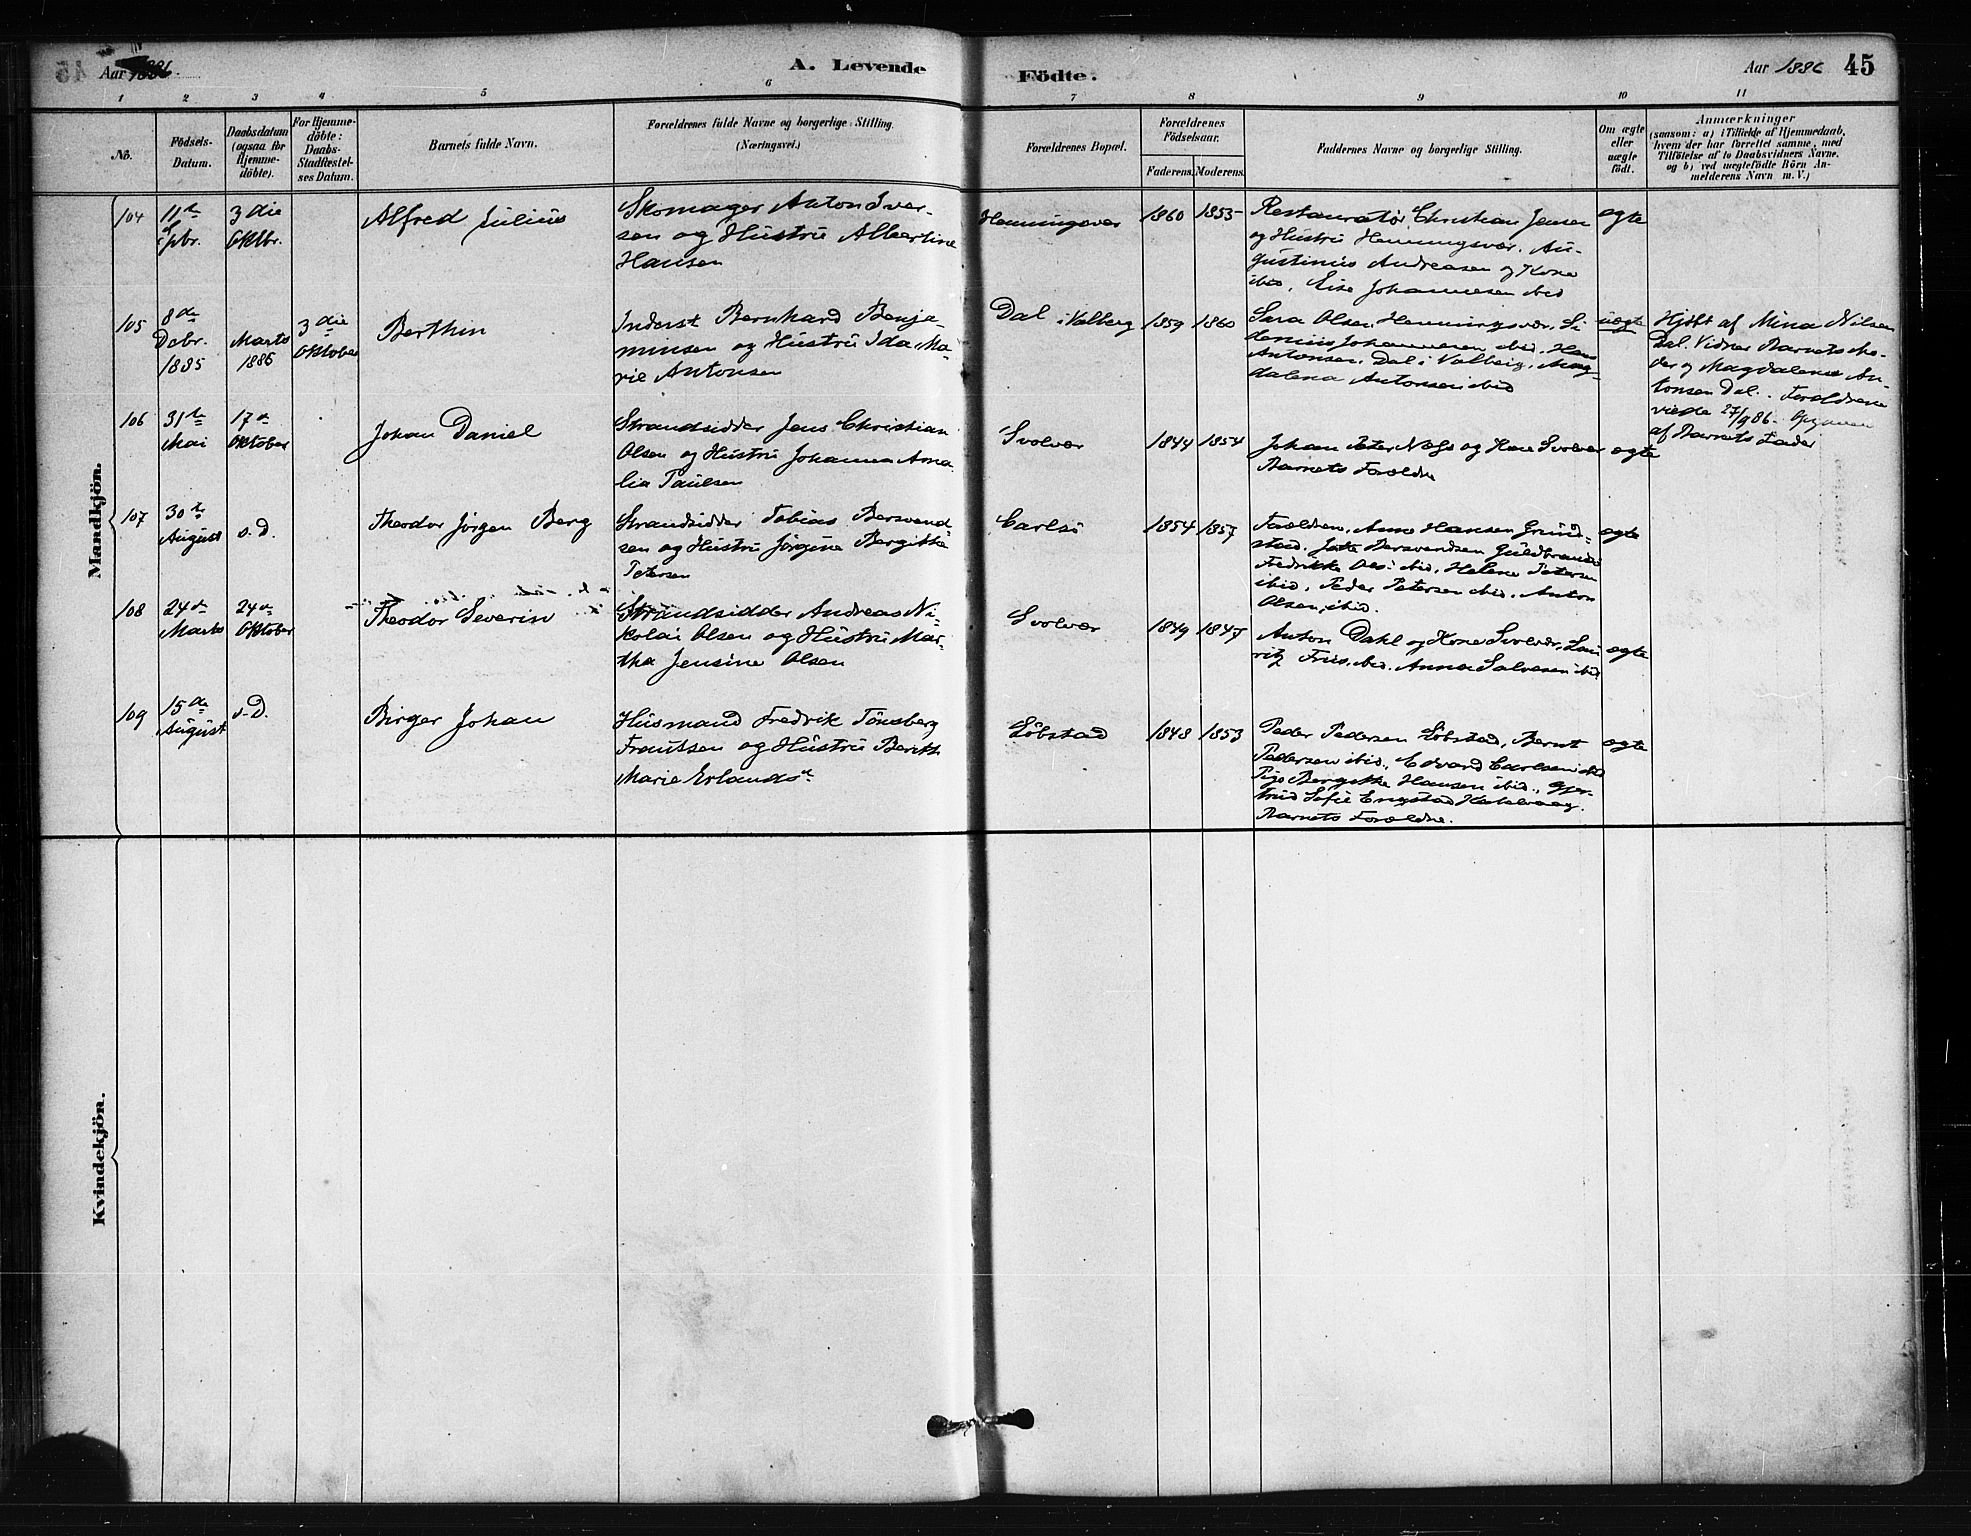 45
Aar 1886.
A. Levende
Födte.
Aar 1886
45
1 2 3 4 5 6 7 8 9 10 11
No.
Födsels-
Datum.
Daabsdatum
(ogsaa for
Hjemme-
döbte).
For Hjemme-
döbte:
Daabs-
Stadfæstel-
ses Datum.
Barnets fulde Navn.
Forældrenes fulde Navne og borgerlige Stilling.
(Næringsvei.)
Forældrenes Bopæl.
Forældrenes
Födselsaar.
Faderens.
Moderens.
Faddernes Navne og borgerlige Stilling.
Om ægte
eller
uægte
födt.
Anmærkninger
(saasom: a) i Tilfælde af Hjemmedaab,
hvem der har forrettet samme, med
Tilföielse af to Daabsvidners Navne,
og b) ved uegtefödte Börn An-
melderens Navn m. V.)
Mandkjön.
104
11te
3die
Oktbr.
Alfred Julius
Skomager Anton Iver-
sen og Hustru Albertine
Hansen
Henningsvær
1860
1855
Restauratør Christian Jensen
og Hustru Henningsvær. Au-
gustinus Andreasen og Kone
ibid, Lise Johannesen ibid
egte
105
8de
Decbr.
1885
Marts
1886
3die
Oktober
Berthin
Inderst Bernhard Benja-
minsen og Hustru Ida Ma-
rie Antonsen
Dal i Valberg
1859
1860
Sara Olsen Henningsvær, Si-
denius Johannesen ibid, Hans
Antonsen, Dal i Valberg, Mag-
dalena Antonsen ibid
uegte
Hjdbt af Mina Nilsen
Dal. Vidner Barnets Mo-
der og Magdalena An-
tonsen Dal. Forældrene
viede 27/9 86. Opgiven
af Barnets Fader
106
31te
Mai
17de
Oktober
Johan Daniel
Strandsidder Jens Christian
Olsen og Hustru Johanna Ama-
lia Paulsen
Svolvær
1844
1854
Johan Peter og Kone Svolvær
Barnets Forældre
egte
107
30te
August
s. D.
Theodor Jörgen Berg
Strandsidder Tobias Bersvend-
sen og Hustru Jörgine Bergitte
Petersen
Carlsö
1854
1857
Forældrene, Arne Hansen Grund-
stad, Bersvendsen
Fredrikke ibid, Helene Petersen
ibid, Peder Petersen ibid, Anton
Olsen, ibid.
egte
108
24de
Marts
24de
Oktober
Theodor Severin
Strandsidder Andreas Ni-
kolai Olsen og Hustru Mar-
tha Jensine Olsen
Svolvær
1849
1847
Anton Dahl og Kone Svolvær, Lau-
ritz Friis, ibid, Anna Salvesen ibid
egte
109
15de
August
s. D.
Birger Johan
Husmand Fredrik Tönsberg
Frantsen og Hustru Berith
Marie Erlandsd
Löbstad
1848
1853
Peder Pedersen Löbstad, Bernt
Pedersen ibid, Edvard Carlsen ibid
Pige Bergitte Hansen ibid, Gjer-
trud Sofie Engstad Kabelvaag.
Barnets Forældre.
egte
Kvindekjön.